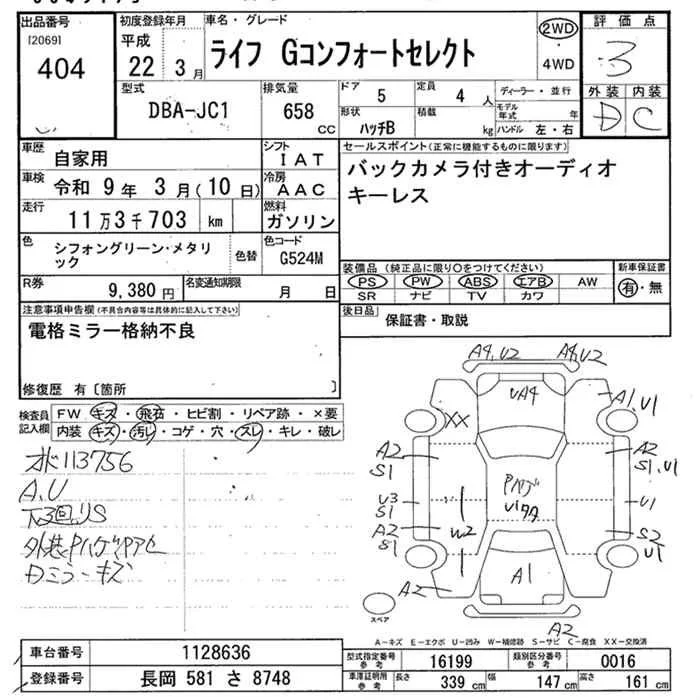 出品番号
[2069]
404
初度登録年月
平成
22 3月
車名・グレード
ライフ Gコンフォートセレクト
2WD
4WD
評価点
3
外装 内装
D C
型式
DBA-JC1
排気量
658 cc
ドア 5
定員 4 人
形状 ハッチB
積載 kg
ディーラー・並行
モデル年式 年
ハンドル 左・右
車歴 自家用
シフト IAT
車検 令和 9年 3月(10日)
冷房 AAC
走行 11万3千703 km
燃料 ガソリン
色 シフォングリーン・メタリック
色替
色コード G524M
R券 9,380円
名変通知期限 月 日
セールスポイント(正常に機能するものに限ります)
バックカメラ付きオーディオ
キーレス
装備品(純正品に限り○をつけてください)
PS PW ABS エアB AW
SR ナビ TV カワ
新車保証書
有・無
後日品 保証書・取説
注意事項申告欄(不具合内容等は具体的に記入して下さい)
電格ミラー格納不良
修復歴 有〔箇所
検査員記入欄
FW キズ・飛石・ヒビ割・リペア跡・×要
内装 キズ・汚レ・コゲ・穴・スレ・キレ・破レ
113756
A,U
A4,U2
A4,U2
UA4
A1,U1
XX
A2
S1
A2
S1,U1
U3
S1
U1
W2
A2
S1
S2
U1
A2
A1
A2
スペア
A-キズ E-エクボ U-凹み W-補修跡 S-サビ C-腐食 XX-交換済
車台番号 1128636
登録番号 長岡 581 さ 8748
型式指定番号 参考 16199
類別区分番号 参考 0016
車検証明用 参考
長さ 339 cm
幅 147 cm
高さ 161 cm